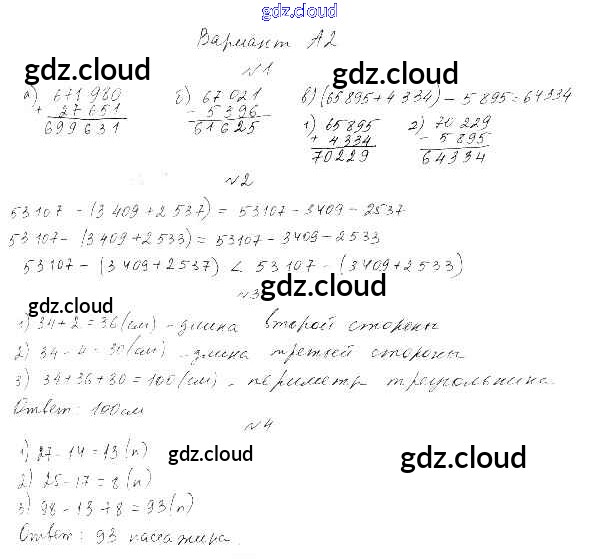 gdz.cloud
Вариант А2
gdz.cloud
gdz.cloud
№1
а) 671 980
+ 27 651
699 631
б) 67 021
- 5 396
61 625
в) (65 895 + 4 334) - 5 895 = 64334
1) 65 895
+ 4 334
70229
2) 70 229
- 5 895
64334
№2
53107 - (3 409 + 2 537) = 53107 - 3409 - 2537
53107 - (3409 + 2533) = 53107 - 3409 - 2533
53107 - (3409 + 2537) < 53107 - (3409 + 2533)
gdz.cloud
gdz.cloud
№3
1) 34 + 2 = 36 (см) - длина второй стороны
2) 34 - 4 = 30 (см) - длина третьей стороны
3) 34 + 36 + 30 = 100 (см) - периметр треугольника
Ответ: 100 см
№4
gdz.cloud
gdz.cloud
1) 27 - 14 = 13 (п)
2) 25 - 17 = 8 (п)
3) 98 - 13 + 8 = 93 (п)
Ответ: 93 пассажира.